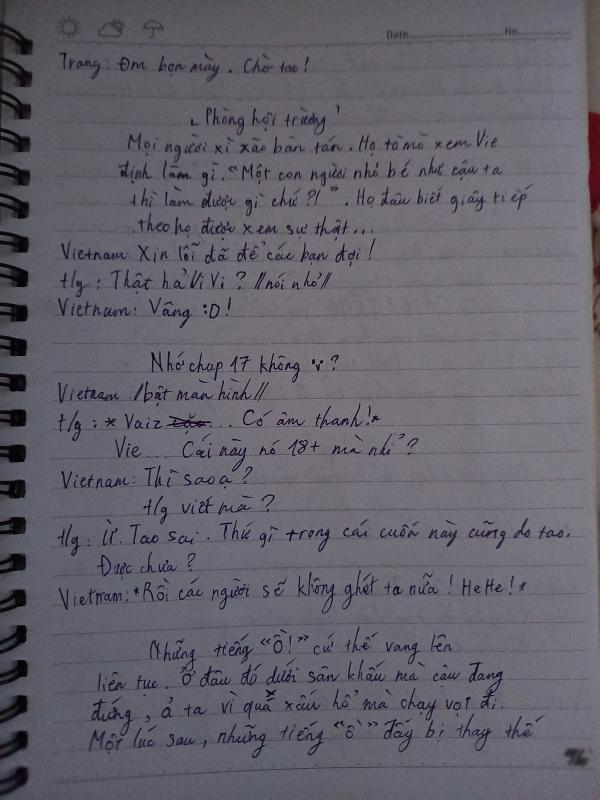 Date No
Trang: Đm bọn mày. Chờ tao!
"Phòng hội trường"
Mọi người xì xào bàn tán. Họ tò mò xem Vie
định làm gì. "Một con người nhỏ bé như cậu ta
thì làm được gì chứ?!". Họ đâu biết giây tiếp
theo họ được xem sự thật...
Vietnam: Xin lỗi đã để các bạn đợi!
t/g: Thật hả Vi Vi? //nói nhỏ//
Vietnam: Vâng :D!
Nhớ chap 17 không ?
Vietnam: //bật màn hình//
t/g: * Vaiz ... Có âm thanh!*
Vie... Cái này nó 18+ mà nhỉ?
Vietnam: Thì sao ạ?
t/g viết mà?
t/g: Ừ. Tao sai. Thứ gì trong cái cuốn này cũng do tao.
Được chưa?
Vietnam: *Rồi các người sẽ không ghét ta nữa! HeHe!*
Những tiếng "Ồ!" cứ thế vang lên
liên tục. Ở đâu đó dưới sân khấu mà cậu đang
đứng, ả ta vì quá xấu hổ mà chạy vọt đi.
Một lúc sau, những tiếng "ồ" đấy bị thay thế